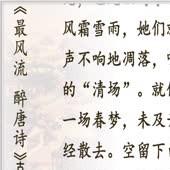 《最风流 醉唐诗》
风霜雪雨，她们
声不响地凋落，
的“清场”。就
一场春梦，未及
经散去。空留下